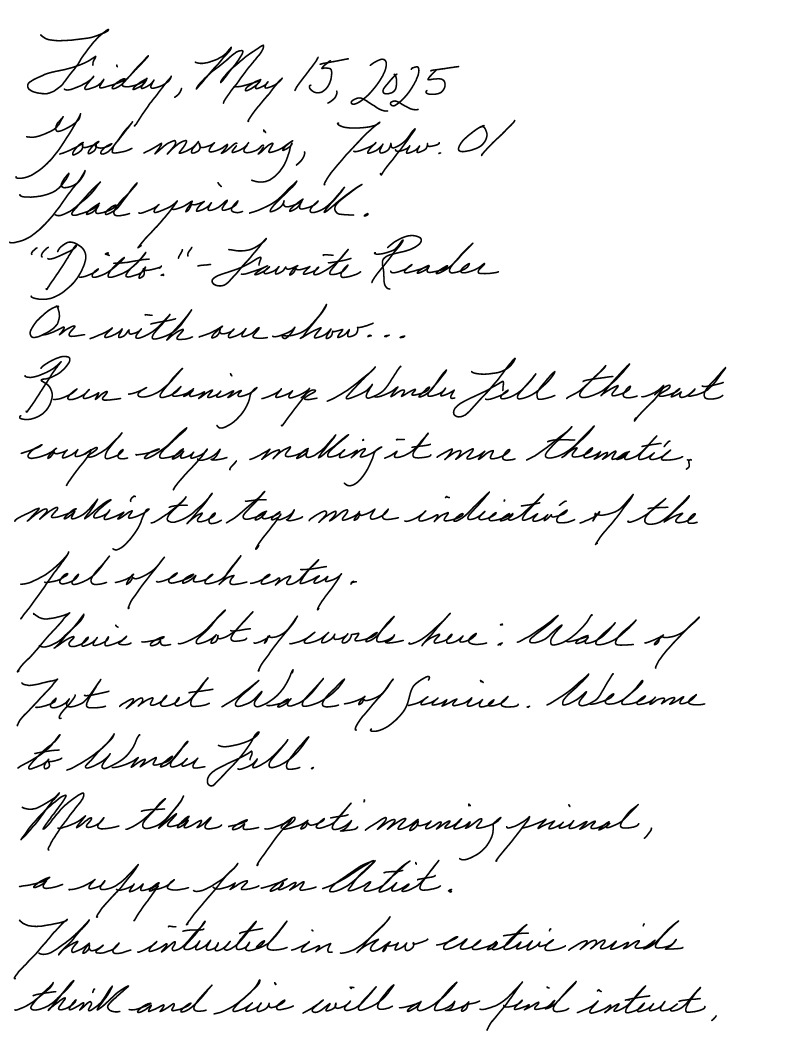 Friday, May 15, 2025
Good morning, Twfw. 01
Glad you're back.
"Ditto." - Favorite Reader
On with our show...
Been cleaning up Wonder Fell the past
couple days, making it more thematic,
making the tags more indicative of the
feel of each entry.
There's a lot of words here: Wall of
Text meet Wall of Sunrise. Welcome
to Wonder Fell.
More than a poet's morning journal,
a refuge for an Artist.
Those interested in how creative minds
think and live will also find interest,